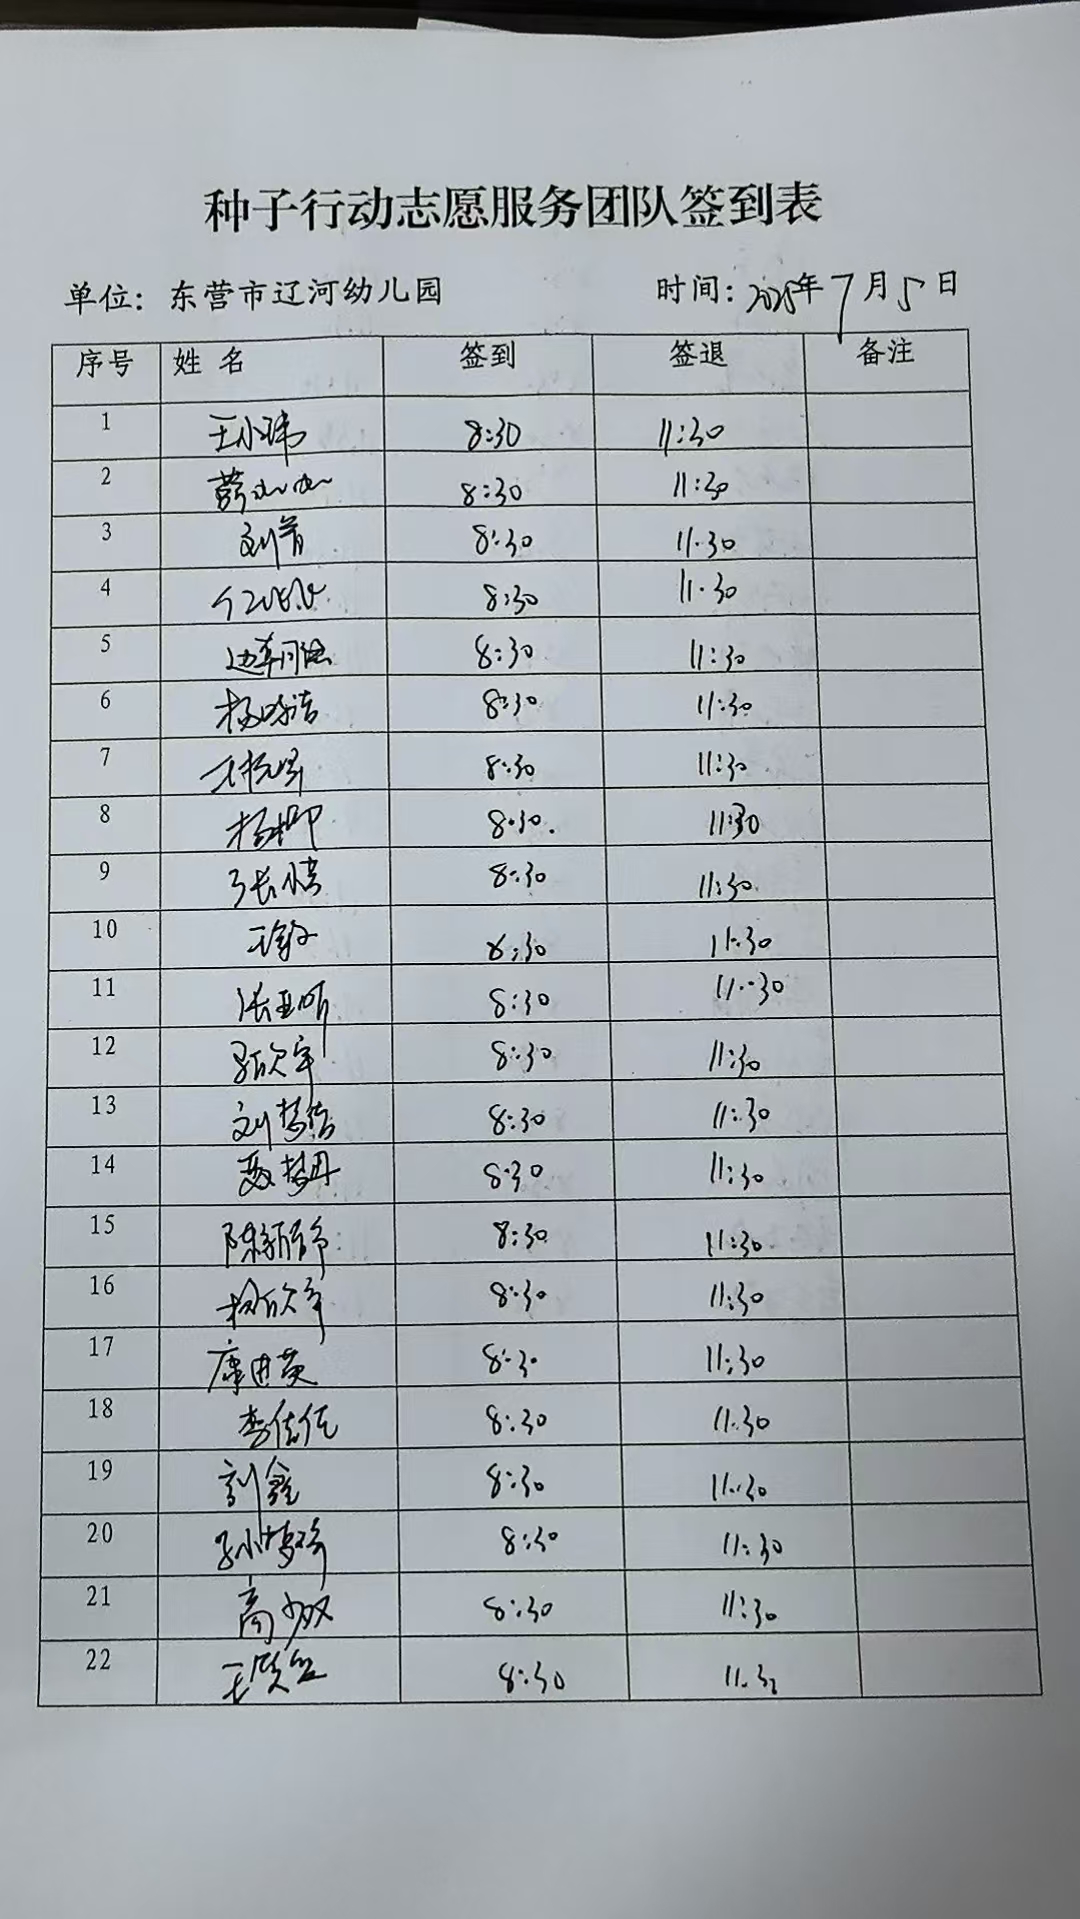 种子行动志愿服务团队签到表
单位：东营市辽河幼儿园 时间：2025年7月5日
序号 姓名 签到 签退 备注
1 王小玮 8:30 11:30
2 8:30 11:30
3 刘菁 8:30 11:30
4 8:30 11:30
5 8:30 11:30
6 8:30 11:30
7 8:30 11:30
8 杨柳 8:30 11:30
9 张倩 8:30 11:30
10 8:30 11:30
11 张亚昕 8:30 11:30
12 8:30 11:30
13 刘梦洁 8:30 11:30
14 聂梦丹 8:30 11:30
15 8:30 11:30
16 杨欣宇 8:30 11:30
17 康田英 8:30 11:30
18 李佳佳 8:30 11:30
19 刘鑫 8:30 11:30
20 8:30 11:30
21 8:30 11:30
22 8:30 11:30